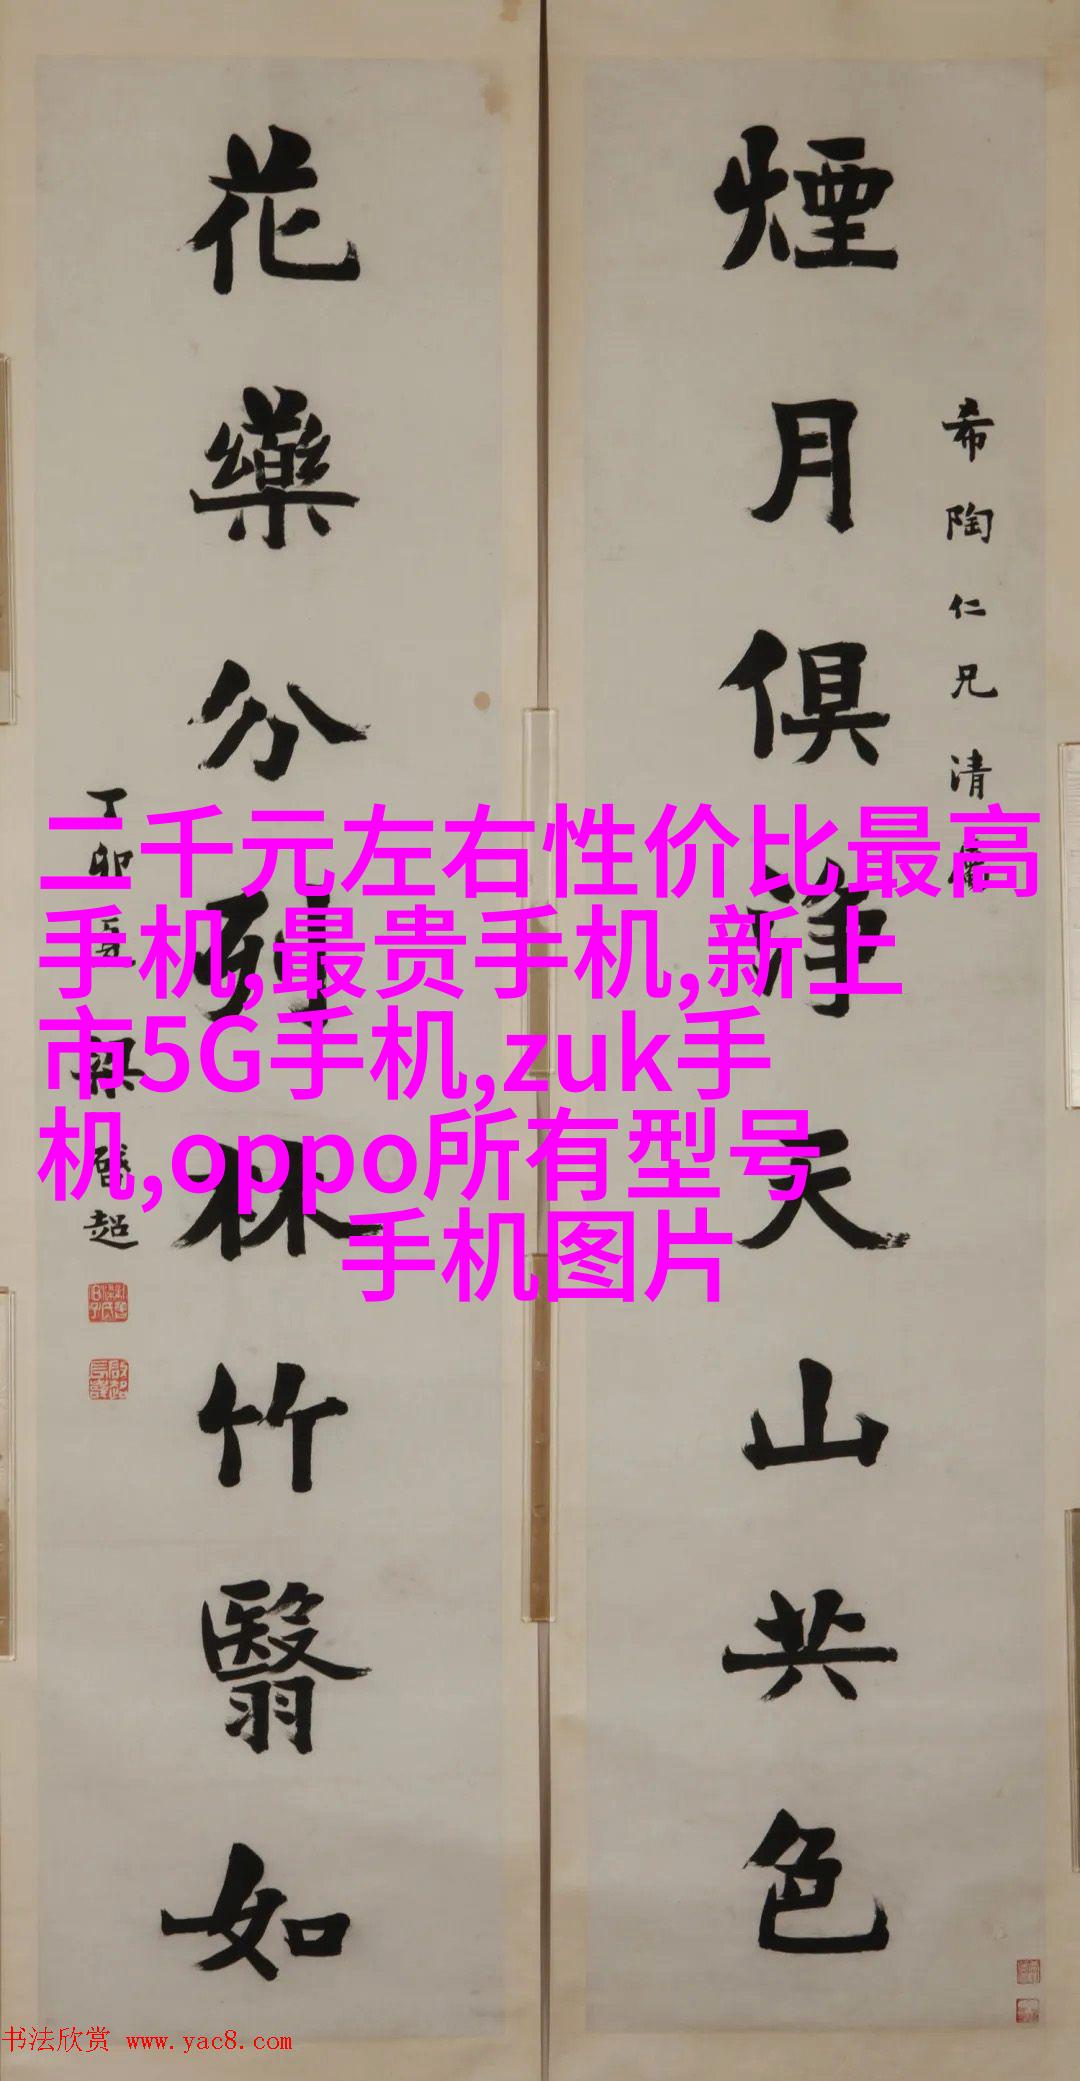 希陶仁兄清
煙月俱淨天山共色
花藥分列林竹翳如
丁卯 梁啓超
二千元左右性价比最高
手机,最贵手机,新上
市5G手机,zuk手
机,oppo所有型号
手机图片
书法欣赏 www.yac8.com